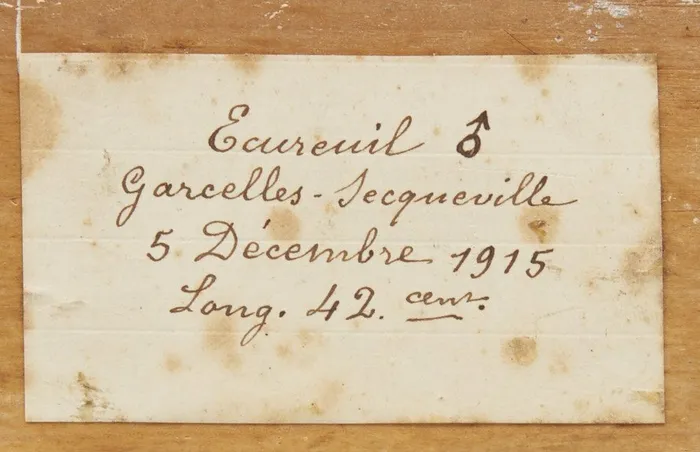 Ecureuil ♂
Garcelles-Secqueville
5 Décembre 1915
Long. 42. cent.